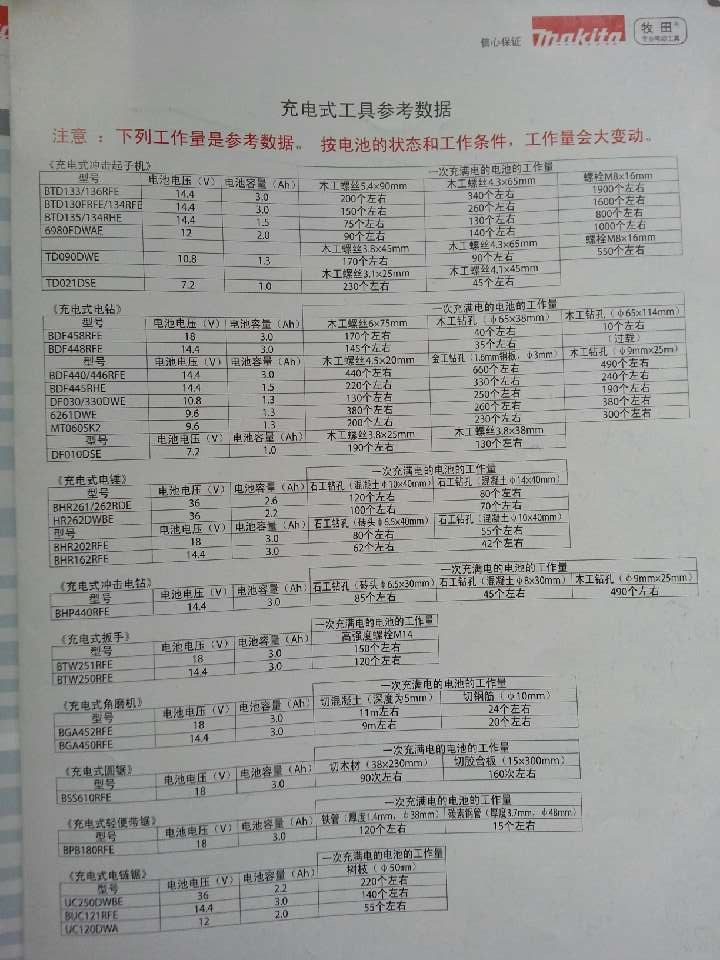 信心保证 Makita 牧田® 专业电动工具
充电式工具参考数据
注意：下列工作量是参考数据。按电池的状态和工作条件，工作量会大变动。
《充电式冲击起子机》 一次充满电的电池的工作量
型号 电池电压（V） 电池容量（Ah） 木工螺丝5.4×90mm 木工螺丝4.3×65mm 螺栓M8×16mm
BTD133/136RFE 14.4 3.0 200个左右 340个左右 1900个左右
BTD130FRFE/134RFE 14.4 3.0 150个左右 260个左右 1600个左右
BTD135/134RHE 14.4 1.5 75个左右 130个左右 800个左右
6980FDWAE 12 2.0 90个左右 140个左右 1000个左右
木工螺丝3.8×45mm 木工螺丝4.3×65mm 螺栓M8×16mm
TD090DWE 10.8 1.3 170个左右 90个左右 550个左右
木工螺丝3.1×25mm 木工螺丝4.1×45mm
TD021DSE 7.2 1.0 230个左右 45个左右
《充电式电钻》 一次充满电的电池的工作量
型号 电池电压（V） 电池容量（Ah） 木工螺丝6×75mm 木工钻孔（φ65×38mm） 木工钻孔（φ65×114mm）
BDF458RFE 18 3.0 170个左右 40个左右 10个左右
BDF448RFE 14.4 3.0 145个左右 35个左右 （过载）
型号 电池电压（V） 电池容量（Ah） 木工螺丝4.5×20mm 金工钻孔（1.6mm钢板，φ3mm） 木工钻孔（φ9mm×25m）
BDF440/446RFE 14.4 3.0 440个左右 660个左右 490个左右
BDF445RHE 14.4 1.5 220个左右 330个左右 240个左右
DF030/330DWE 10.8 1.3 130个左右 250个左右 190个左右
6261DWE 9.6 1.3 380个左右 260个左右 380个左右
MT060SK2 9.6 1.3 200个左右 230个左右 300个左右
型号 电池电压（V） 电池容量（Ah） 木工螺丝3.8×25mm 木工螺丝3.8×38mm
DF010DSE 7.2 1.0 190个左右 130个左右
《充电式电锤》 一次充满电的电池的工作量
型号 电池电压（V） 电池容量（Ah） 石工钻孔（混凝土φ10×40mm） 石工钻孔（混凝土φ14×40mm）
BHR261/262RDE 36 2.6 120个左右 80个左右
HR262DWBE 36 2.2 100个左右 70个左右
型号 电池电压（V） 电池容量（Ah） 石工钻孔（砖头φ6.5x40mm） 石工钻孔（混凝土φ10x40mm）
BHR202RFE 18 3.0 80个左右 55个左右
BHR162RFE 14.4 3.0 62个左右 42个左右
《充电式冲击电钻》 一次充满电的电池的工作量
型号 电池电压（V） 电池容量（Ah） 石工钻孔（砖头φ6.5x30mm） 石工钻孔（混凝土φ8x30mm） 木工钻孔（φ9mm×25mm）
BHP440RFE 14.4 3.0 85个左右 45个左右 490个左右
《充电式扳手》 一次充满电的电池的工作量
型号 电池电压（V） 电池容量（Ah） 高强度螺栓M14
BTW251RFE 18 3.0 150个左右
BTW250RFE 14.4 3.0 120个左右
《充电式角磨机》 一次充满电的电池的工作量
型号 电池电压（V） 电池容量（Ah） 切混凝土（深度为5mm） 切钢筋（φ10mm）
BGA452RFE 18 3.0 11m左右 24个左右
BGA450RFE 14.4 3.0 9m左右 20个左右
《充电式圆锯》 一次充满电的电池的工作量
型号 电池电压（V） 电池容量（Ah） 切木材（38×230mm） 切胶合板（15×300mm）
BSS610RFE 18 3.0 90次左右 160次左右
《充电式轻便带锯》 一次充满电的电池的工作量
型号 电池电压（V） 电池容量（Ah） 铁管（厚度1.4mm，φ38mm） 碳素钢管（厚度3.7mm，φ48mm）
BPB180RFE 18 3.0 120个左右 15个左右
《充电式电链锯》 一次充满电的电池的工作量
型号 电池电压（V） 电池容量（Ah） 树枝（φ50mm）
UC250DWBE 36 2.2 220个左右
BUC121RFE 14.4 3.0 140个左右
UC120DWA 12 2.0 55个左右